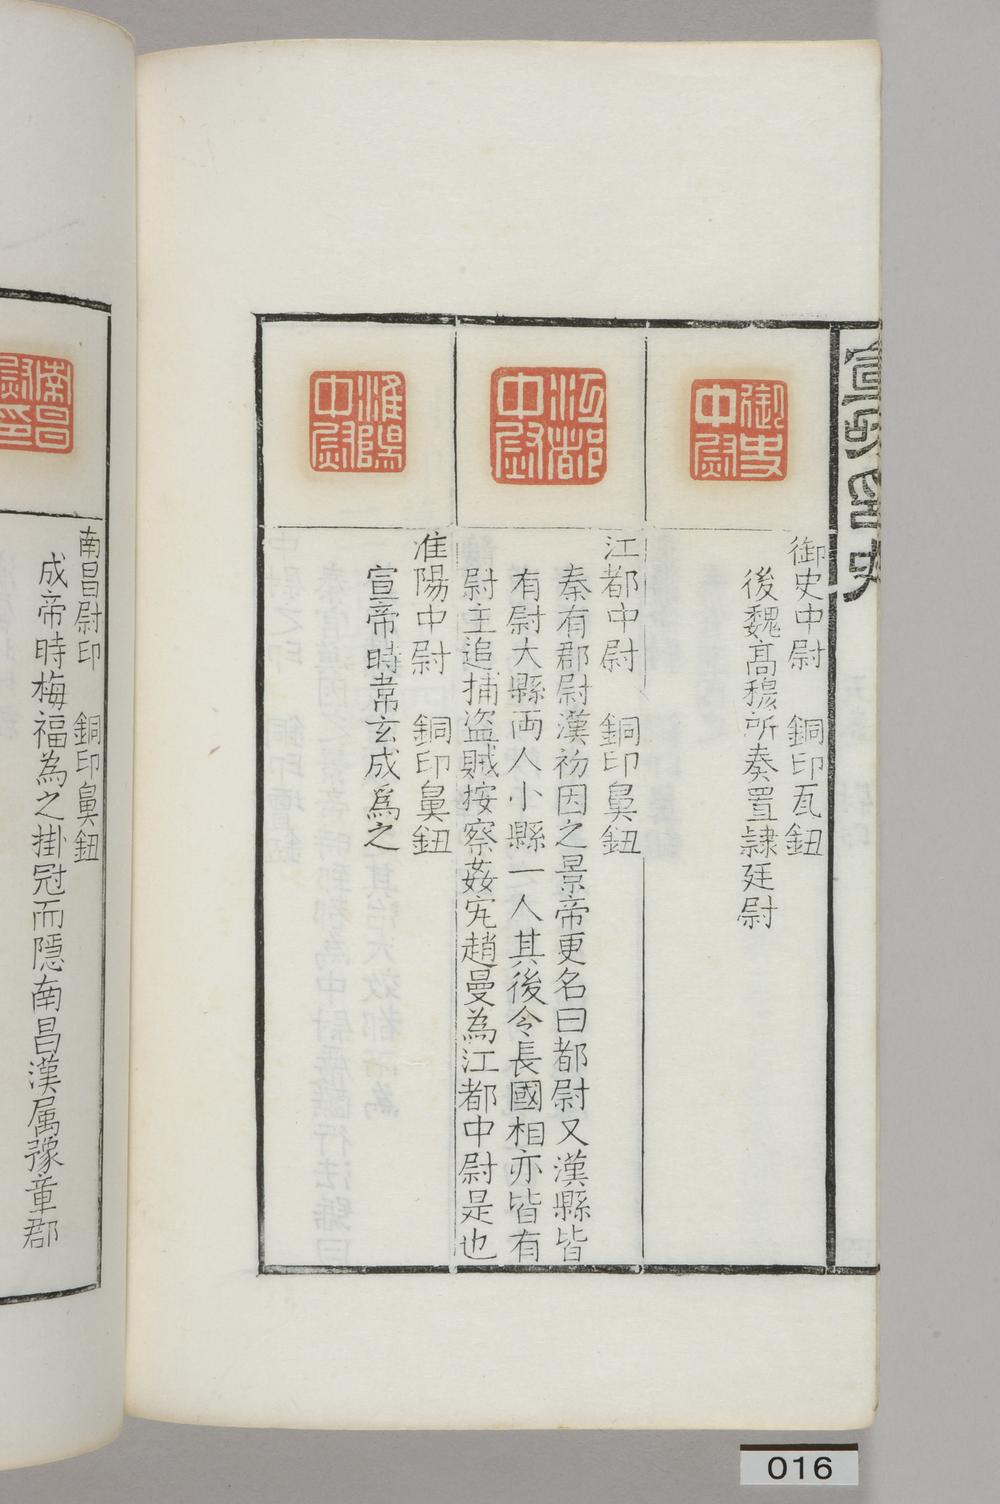 宣和印史
御史中尉
御史中尉 銅印瓦鈕
後魏高穆所奏置隷廷尉
江都中尉
江都中尉 銅印鼻鈕
秦有郡尉漢初因之景帝更名曰都尉又漢縣皆
有尉大縣両人小縣一人其後令長國相亦皆有
尉主追捕盗賊按察姦宄趙曼為江都中尉是也
淮陽中尉
淮陽中尉 銅印鼻鈕
宣帝時韋玄成爲之
南昌尉印
南昌尉印 銅印鼻鈕
成帝時梅福為之掛冠而隱南昌漢属豫章郡
016